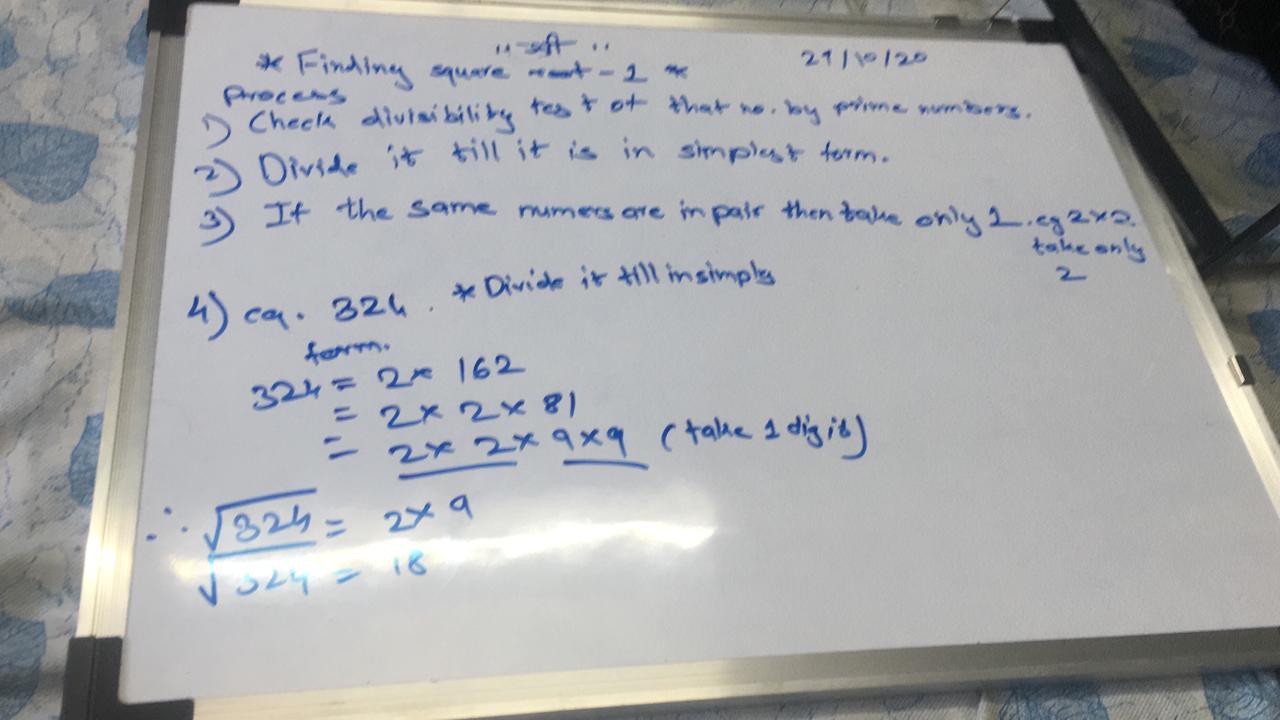 " श्री "
* Finding square root - 1 *
29/10/20
Process
1) Check divisibility test of that no. by prime numbers.
2) Divide it till it is in simplest form.
3) If the same numers are in pair then take only 1. eg 2×2.
take only
2
4) eg. 324. * Divide it till in simply
form.
324 = 2× 162
= 2× 2× 81
= 2× 2× 9×9 (take 1 digit)
∴ √324 = 2×9
√324 = 18